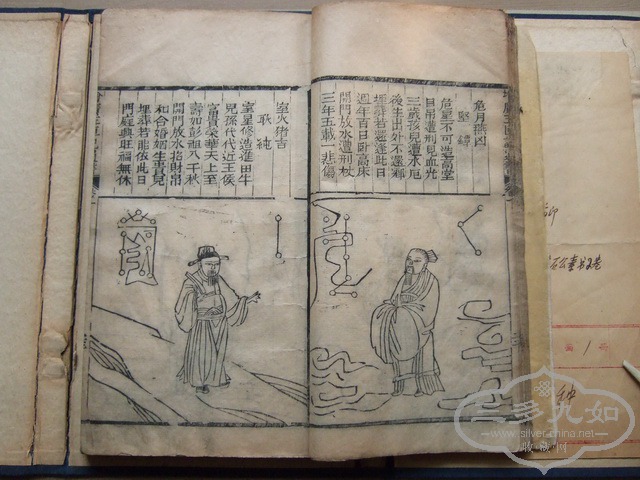 危月燕凶
堅鐔
危星不可造高堂
自吊遭刑見血光
三歲孩兒遭水厄
後生出外不還鄉
埋葬若還逢此日
週年百日臥高床
開門放水遭刑杖
三年五載一悲傷
室火猪吉
耿純
室星修造進田牛
兒孫代代近王侯
富貴榮華天上至
壽如彭祖八千秋
開門放水招財帛
和合婚姻生貴兒
埋葬若能依此日
門庭興旺福無休
1
三多九如
www.silver-china.net
收藏网